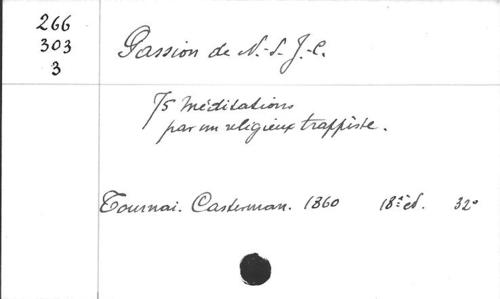 266
303
3
Passion de N.-S. J.-C.
75 méditations
par un religieux trappiste.
Tournai. Casterman. 1860 18e éd. 32°